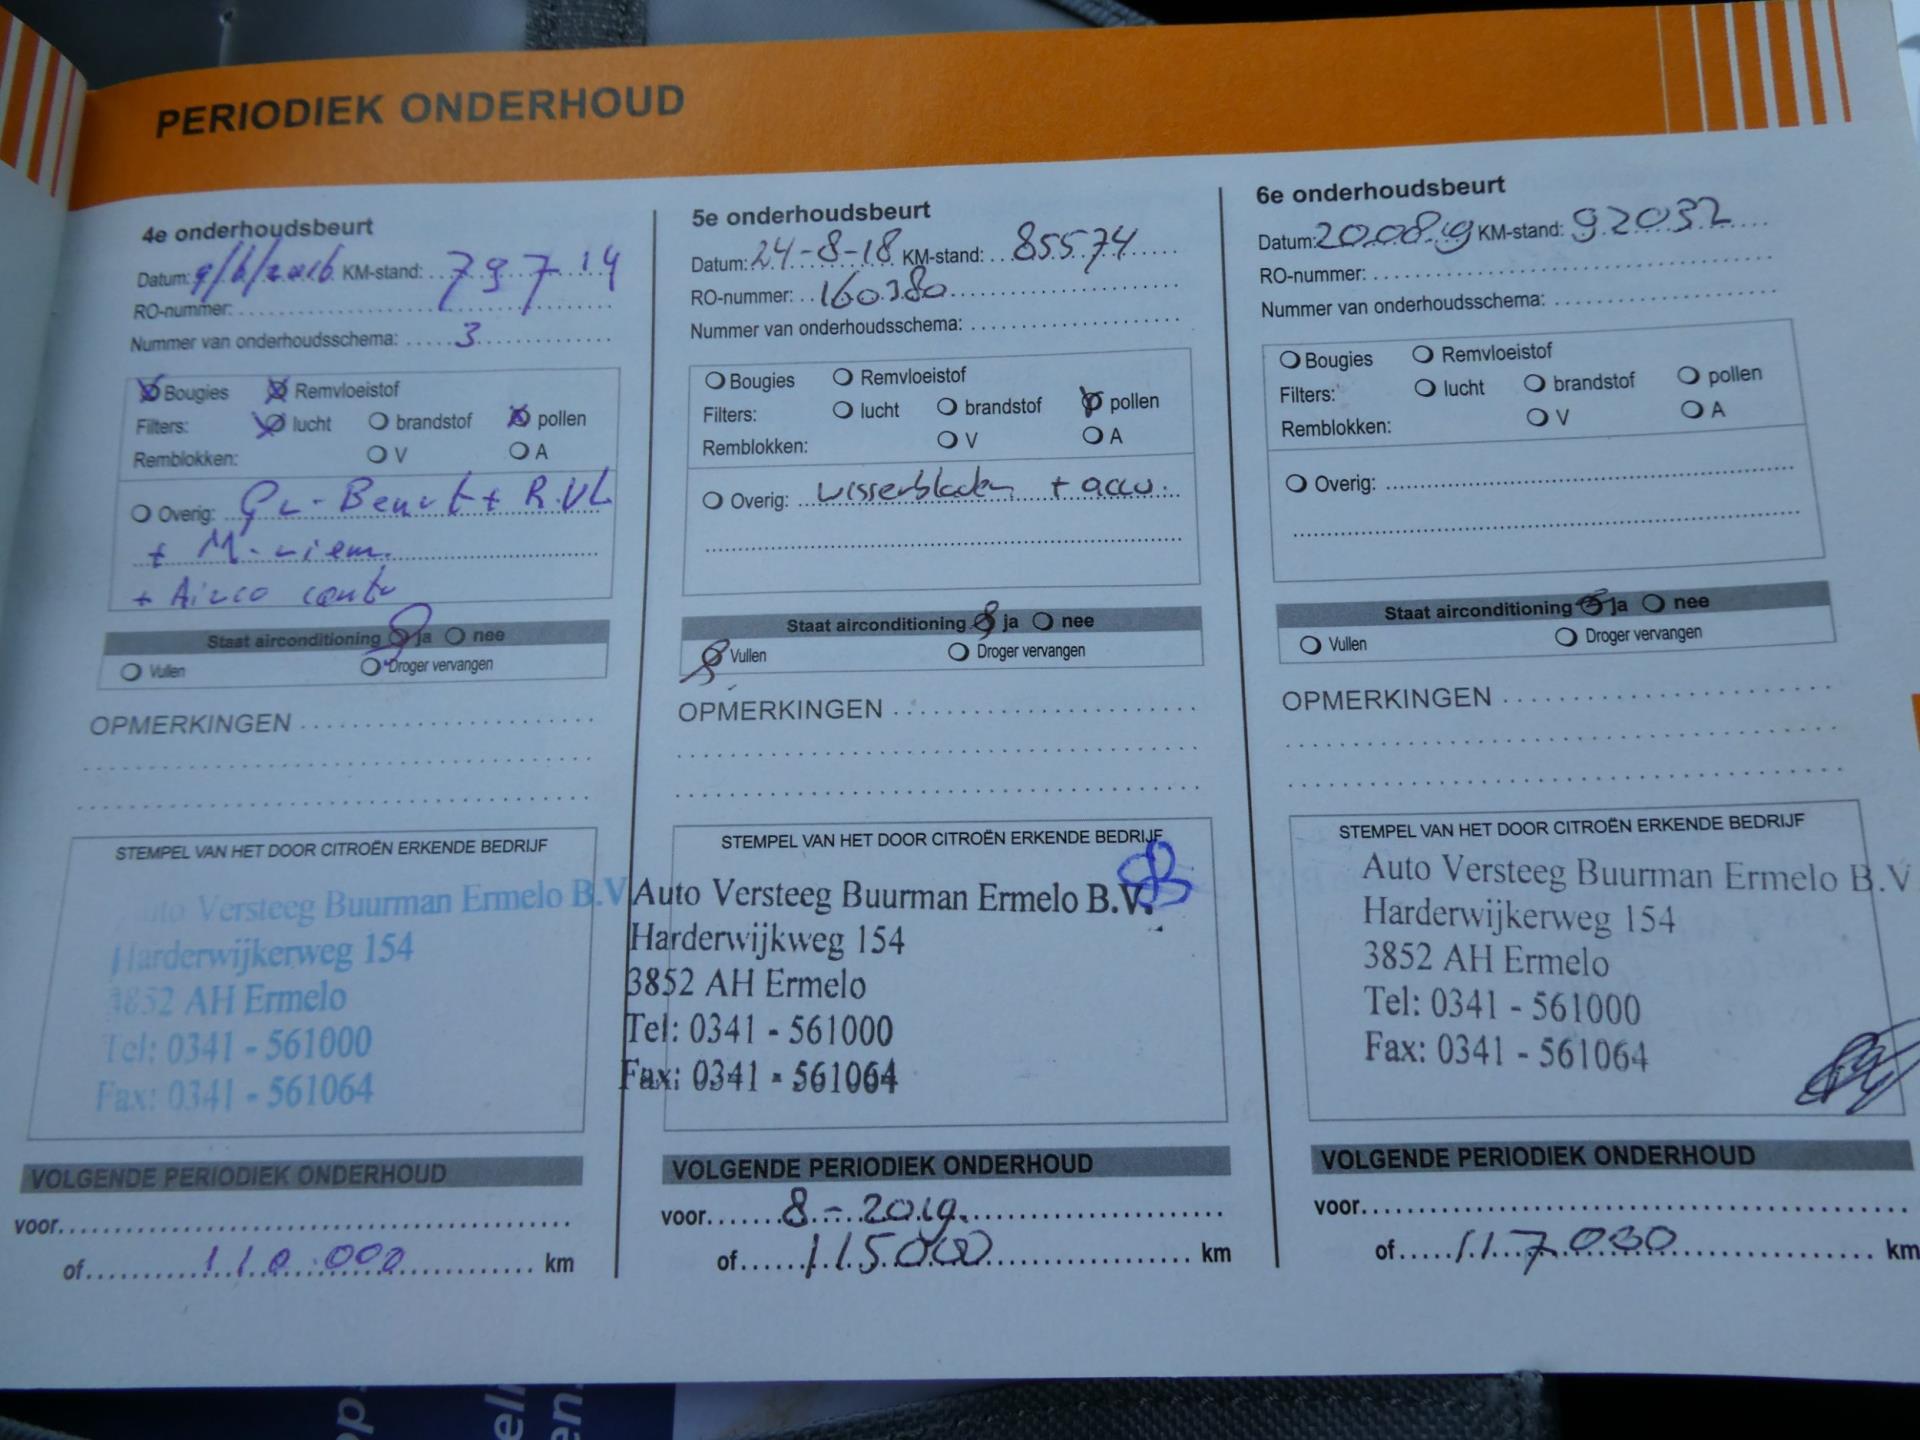 PERIODIEK ONDERHOUD
4e onderhoudsbeurt
Datum: 9/6/2016 KM-stand: 79714
RO-nummer:
Nummer van onderhoudsschema: 3
Bougies Remvloeistof
Filters: lucht brandstof pollen
Remblokken: V A
Overig: Gr-Beurt + R.VL
+ M-riem
+ Airco contr
Staat airconditioning ja nee
Vullen Droger vervangen
OPMERKINGEN
STEMPEL VAN HET DOOR CITROËN ERKENDE BEDRIJF
Auto Versteeg Buurman Ermelo B.V
Harderwijkerweg 154
3852 AH Ermelo
Tel: 0341 - 561000
Fax: 0341 - 561064
VOLGENDE PERIODIEK ONDERHOUD
voor
of 110.000 km
5e onderhoudsbeurt
Datum: 24-8-18 KM-stand: 85574
RO-nummer: 160380
Nummer van onderhoudsschema:
Bougies Remvloeistof
Filters: lucht brandstof pollen
Remblokken: V A
Overig: wisserbladen + accu.
Staat airconditioning ja nee
Vullen Droger vervangen
OPMERKINGEN
STEMPEL VAN HET DOOR CITROËN ERKENDE BEDRIJF
Auto Versteeg Buurman Ermelo B.V.
Harderwijkweg 154
3852 AH Ermelo
Tel: 0341 - 561000
Fax: 0341 - 561064
VOLGENDE PERIODIEK ONDERHOUD
voor 8-2019.
of 115000 km
6e onderhoudsbeurt
Datum: 200819 KM-stand: 92032
RO-nummer:
Nummer van onderhoudsschema:
Bougies Remvloeistof
Filters: lucht brandstof pollen
Remblokken: V A
Overig:
Staat airconditioning ja nee
Vullen Droger vervangen
OPMERKINGEN
STEMPEL VAN HET DOOR CITROËN ERKENDE BEDRIJF
Auto Versteeg Buurman Ermelo B.V
Harderwijkerweg 154
3852 AH Ermelo
Tel: 0341 - 561000
Fax: 0341 - 561064
VOLGENDE PERIODIEK ONDERHOUD
voor
of 117.030 km